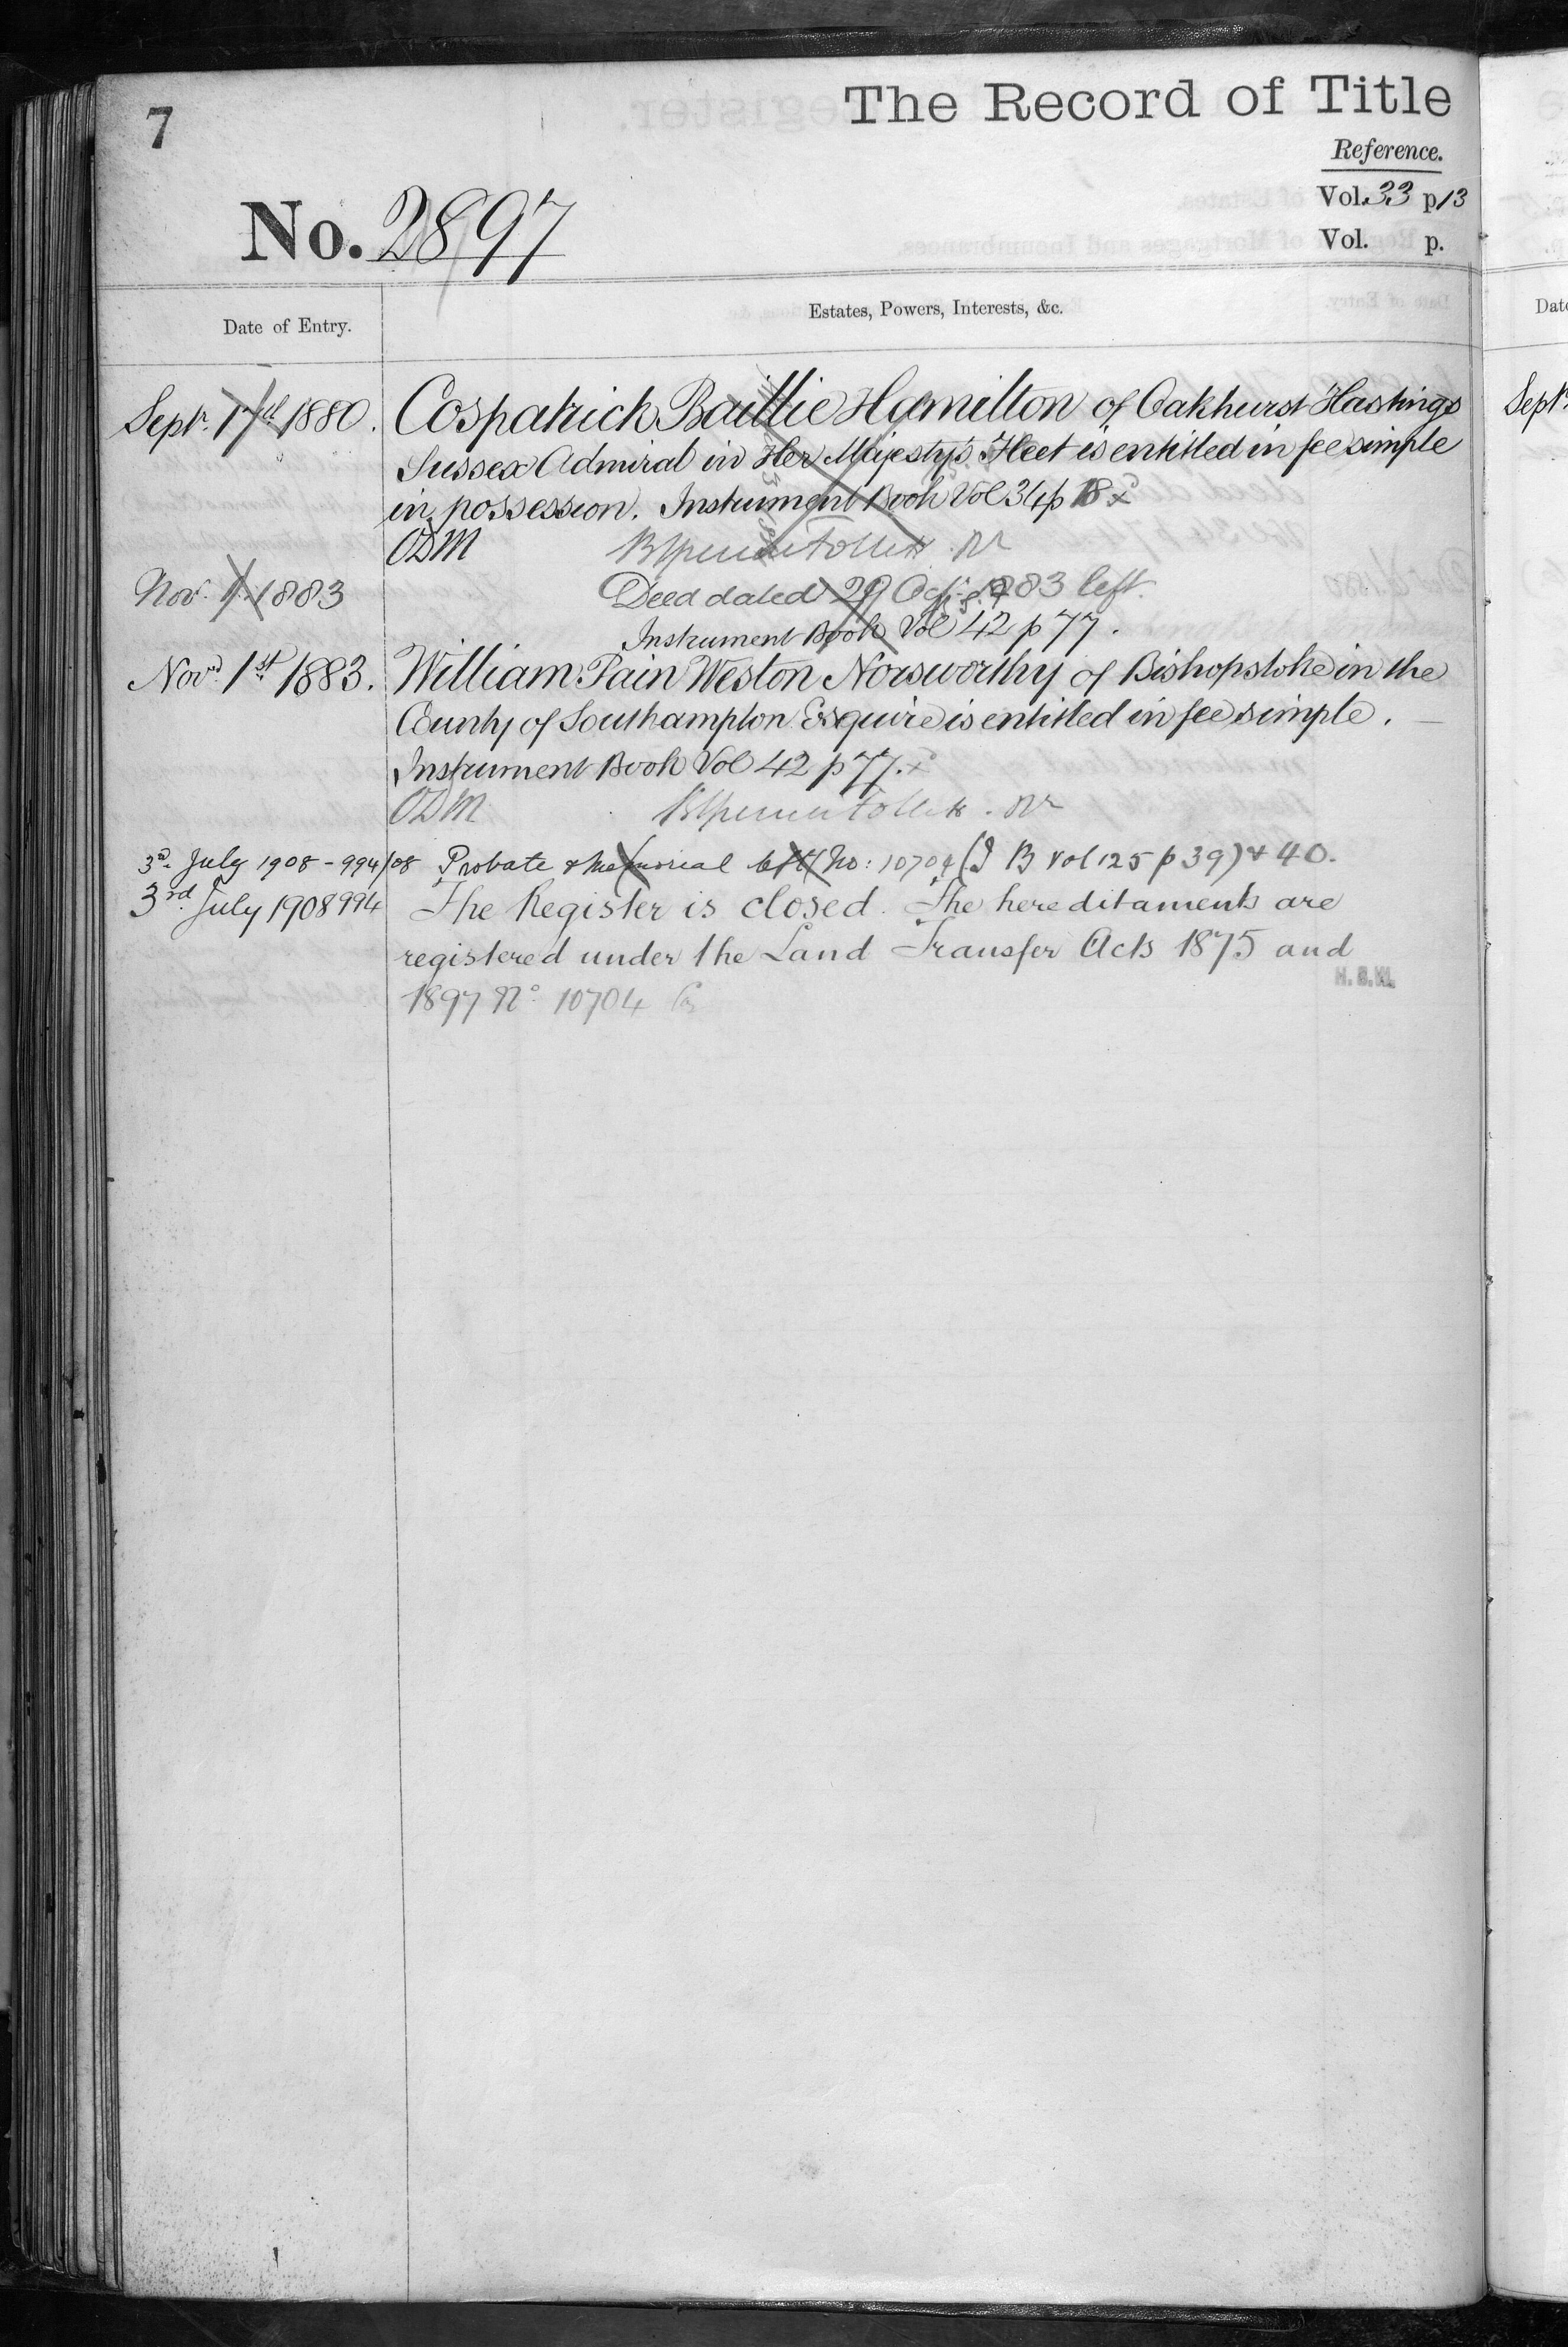 7
The Record of Title
Reference.
Vol. 33 p 13
Vol. p.
No. 2897
Date of Entry.
Estates, Powers, Interests, &c.
Sept. 17th 1880. Cospatrick Baillie Hamilton of Oakhurst Hastings
Sussex Admiral in Her Majesty's Fleet is entitled in fee simple
in possession. Instrument Book Vol 34 p 18
ODM
Nov. 1. 1883 Deed dated 29 Oct. 1883 left.
Instrument Book Vol 42 p 77.
Nov. 1st 1883. William Pain Weston Norsworthy of Bishopstoke in the
County of Southampton Esquire is entitled in fee simple.
Instrument Book Vol 42 p 77.
ODM
3rd July 1908 - 994/08 Probate & Memorial left No: 10704 (I B Vol 125 p 39) & 40.
3rd July 1908 994 The Register is closed. The hereditaments are
registered under the Land Transfer Acts 1875 and
1897 No 10704
Date
Sept